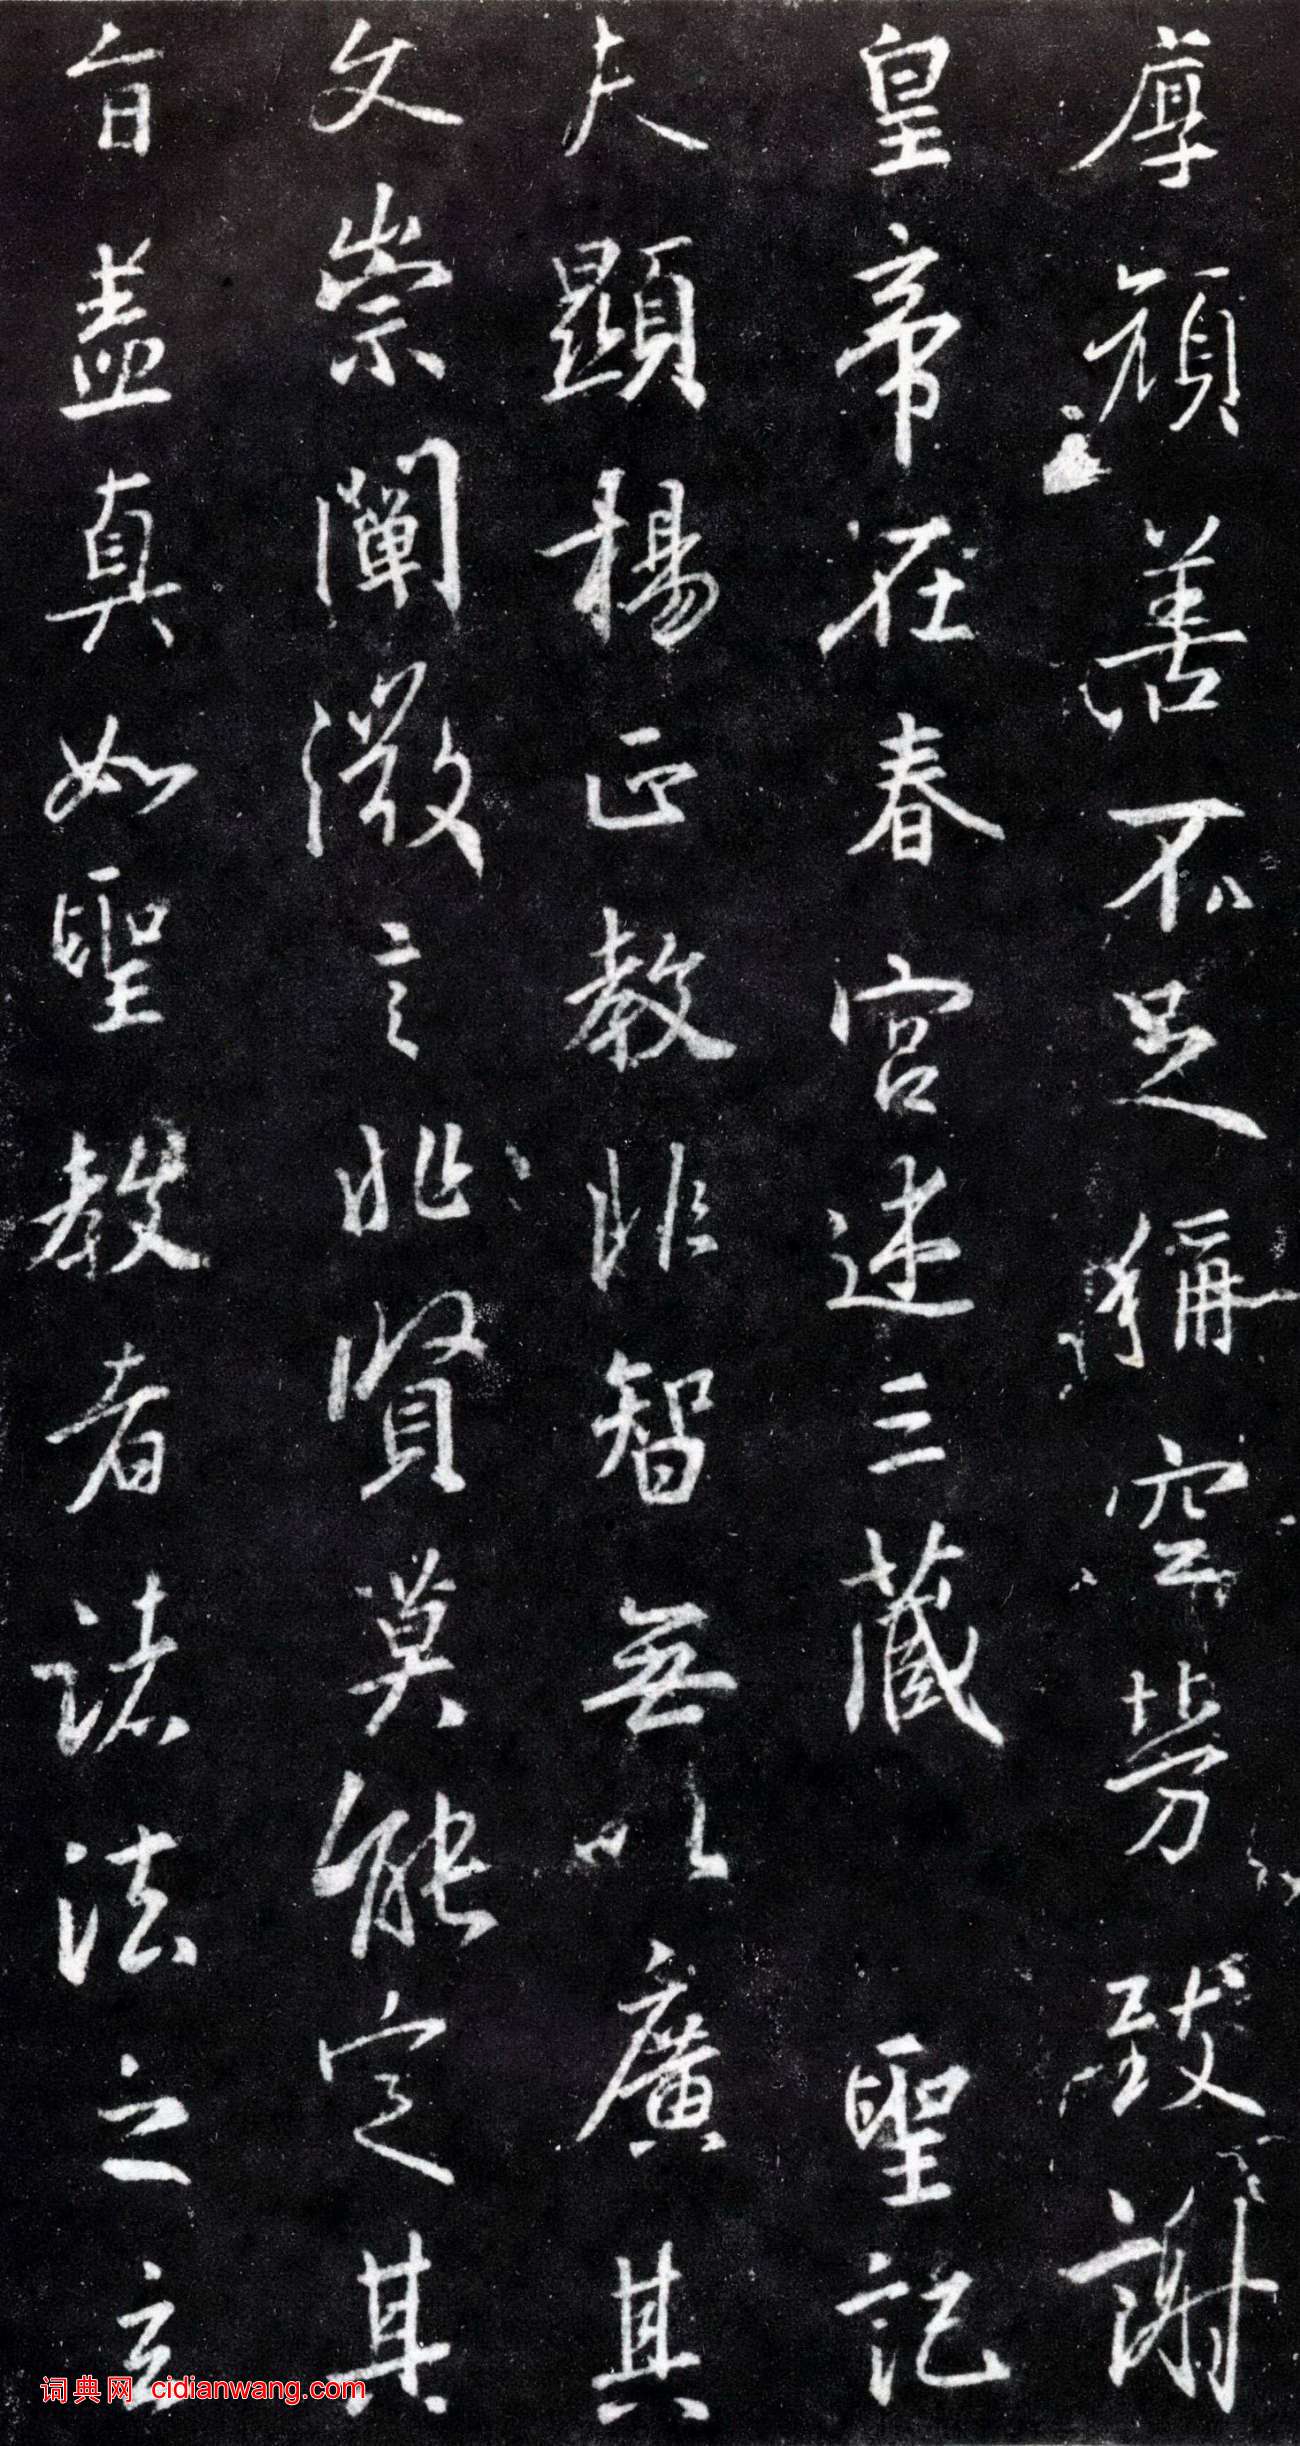 厚顏善不足稱空勞致謝
皇帝在春宮述三藏聖記
夫顯揚正教非智無以廣其
文崇闡微言非賢莫能定其
旨蓋真如聖教者諸法之玄
词典网 cidianwang.com